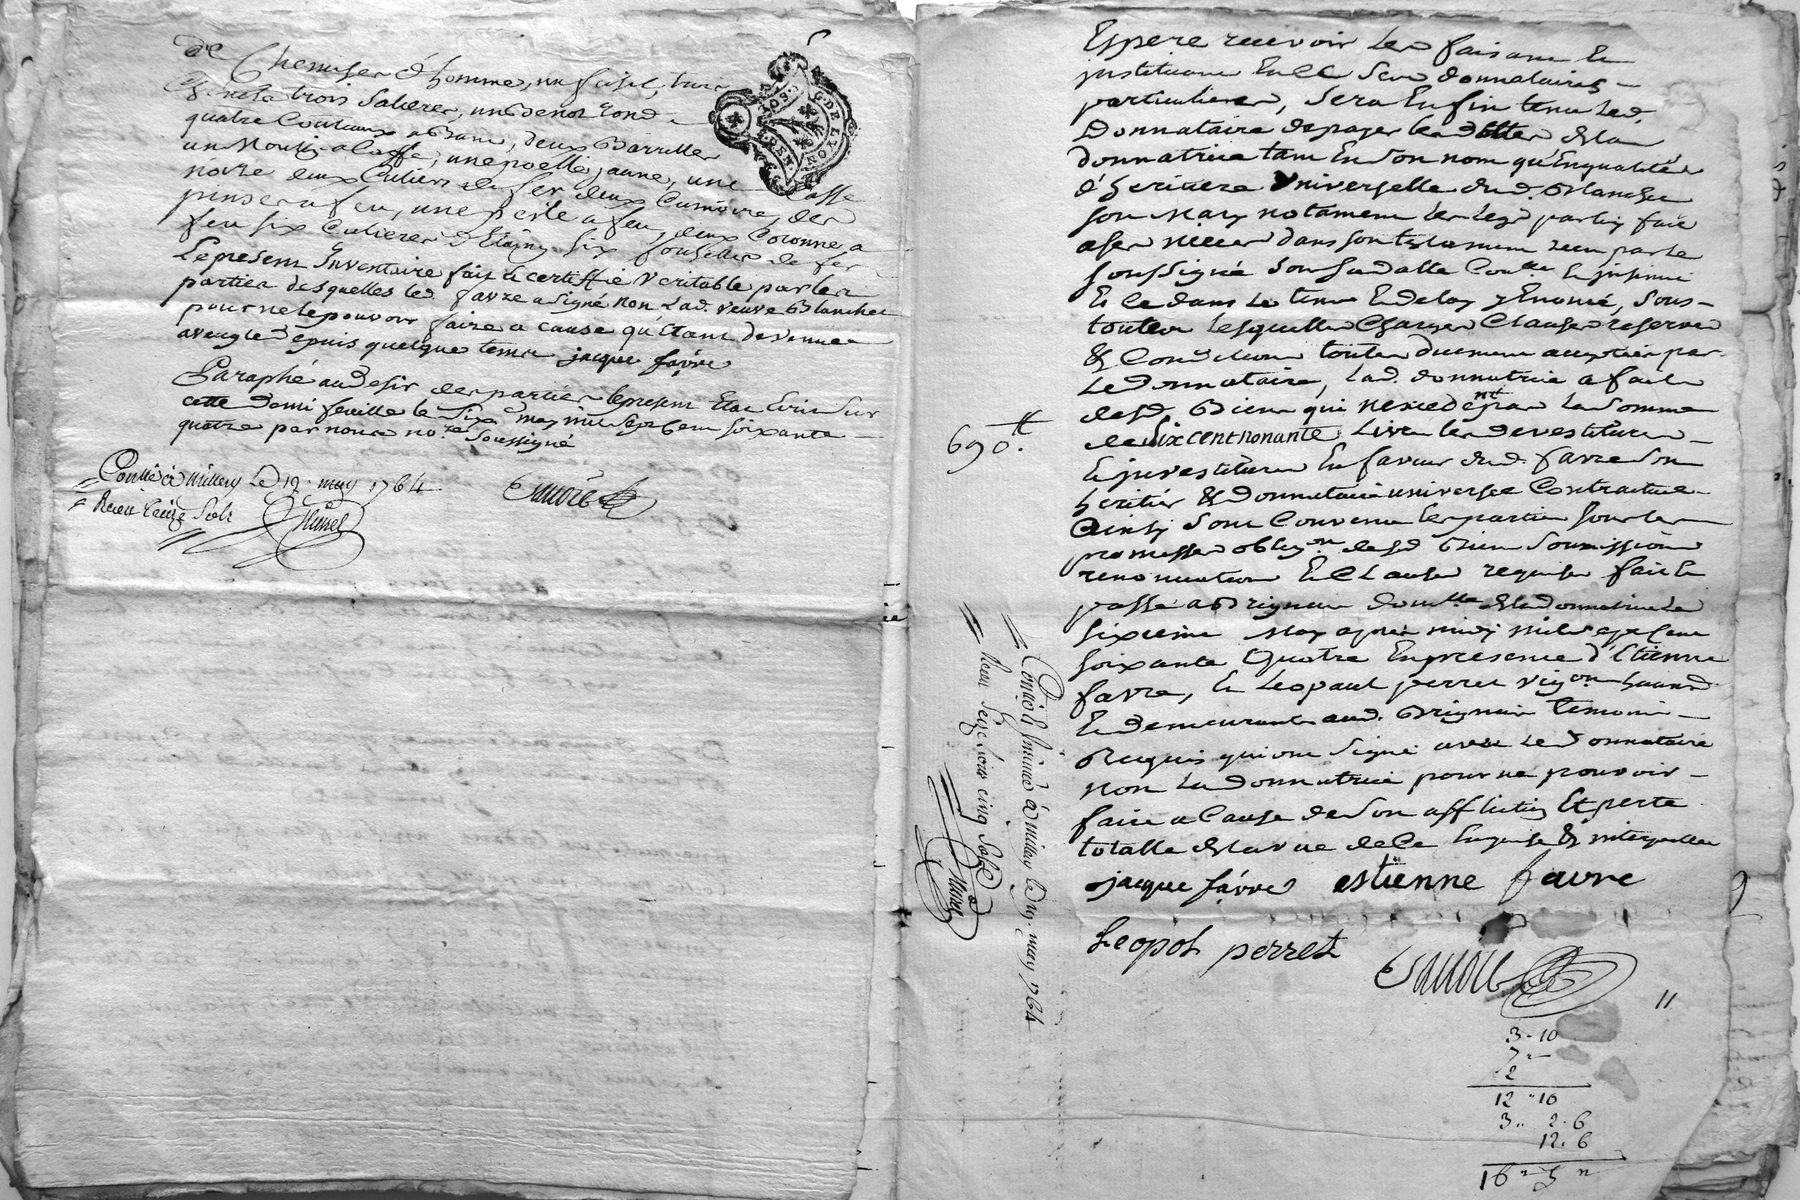 de Chemises d'homme, un fusil, trois
trois Salieres, un Benot rond
quatre Couteaux
un Moulin a Caffé, une poelle jaune, une Casse
noire deux Culiers de fer deux
pinser a feu, une pesle a feu, deux Coronne a
feu six Culieres d'Etain six fousettes de fer
Le present Inventaire fait et certiffié veritable par les
parties desquelles led. favre a signé non Lad. veuve Blanchet
pour ne le pouvoir faire a cause qu'Etant devenue
aveugle depuis quelque tems jacque favre
Paraphé au desir des parties le present Etat Ecrit sur
cette demi feuille le six may mil sept Cent soixante
quatre par nous no.re Soussigné
Con.lé à Millery Le 19 may 1764
Receu treize sols
G. DE LYON
GEN
Espere recevoir les faisant
justituant Elle ses donnataires
particulieres, sera Enfin tenu led.
Donnataire de payer les dettes de la
donnatrice tant En son nom qu'En qualité
d'heritiere Universelle dud. Blanchet
son Mary notament les legs par luy fait
a ses nieces dans son testament receu par le
soussigné sous sa datte Con.lé et insinué
Et ce dans le tems Et delay y Enoncé, Sous
toutes lesquelles Charges Clauses reserves
& Conditions toutes duement acceptées par
Le Donnataire, Lad. donnatrice a fait
desd. Biens qui n'excedent pas La somme
de Six cent nonante Livres les devestitures
690.tt
Et investitures En faveur dud. favre son
heritier & donnataire universel Contractuel
Ainsy sont Convenu les parties sous les
promesses oblig.on desd. Biens Soumissions
renonciations Et Clauses requises fait et
passé a Brignais domi.lle de la donnatrice Le
sixieme May apres midy mil sept Cent
soixante Quatre En presence d'Etienne
favre, et Leopaul perret vig.on
Et demeurants aud. Brignais temoins
Requis qui ont signé avec Le Donnataire
Non La Donnatrice pour ne pouvoir
faire a Cause de son affliction Et perte
totalle de la vue de Ce Enquise & interpellée
jacque favre estienne favre
Leopol perret
Con.lé & Insinué à Millery le 19. may 1764
Receu seize livres cinq sols
11
3 - 10
7 -
2
12 " 10
3 " 2 . 6
12 . 6
16 " 5 "